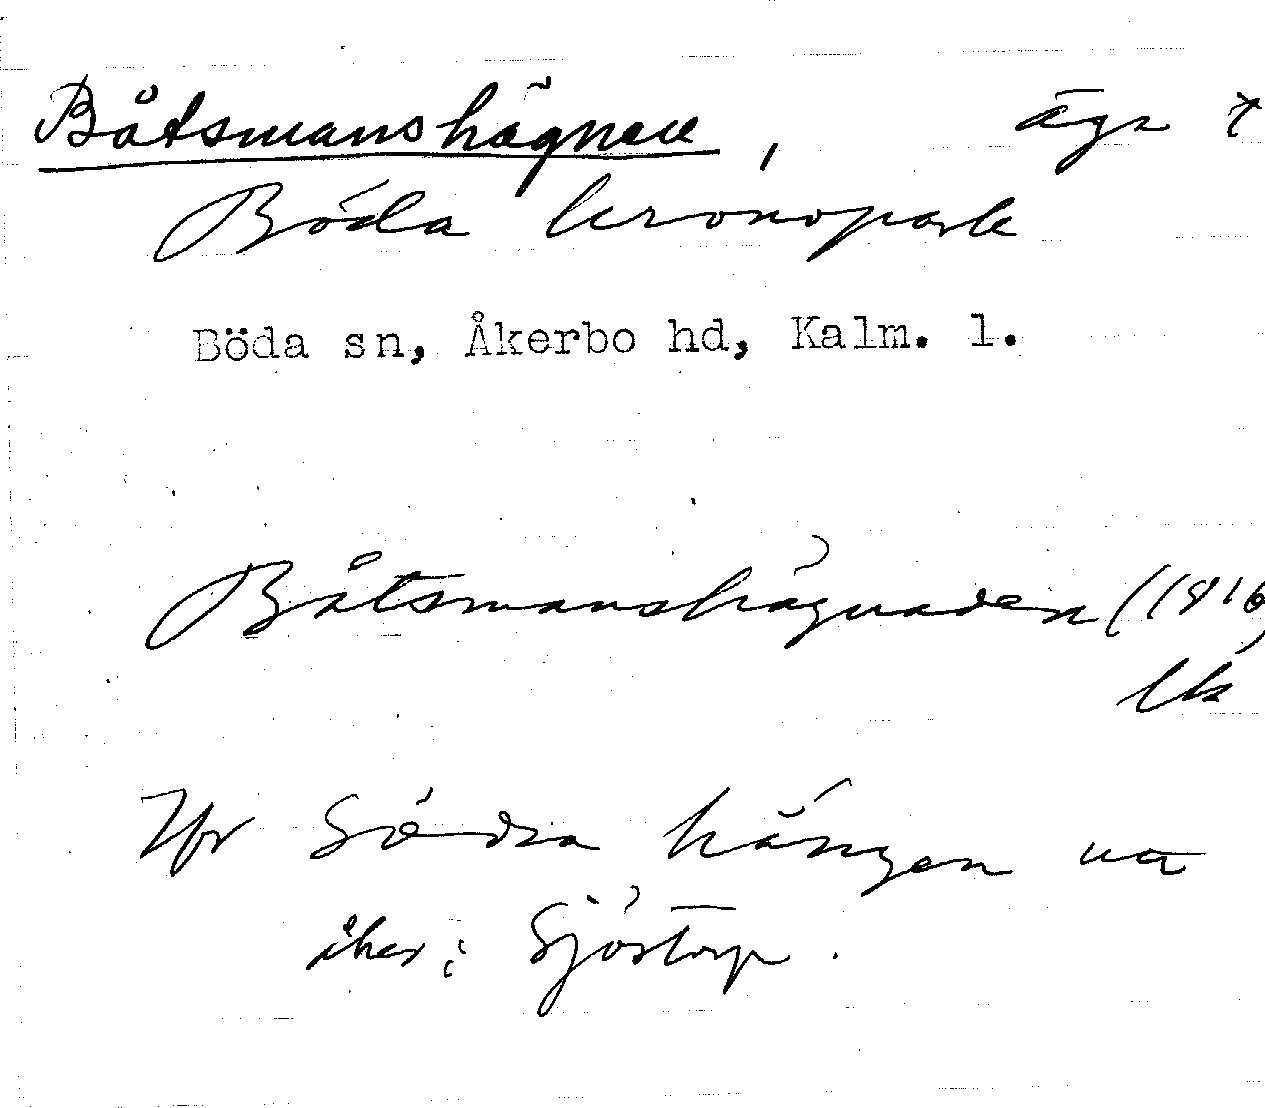 Båtsmanshägnen, ägn †
Böda kronopark
Böda sn, Åkerbo hd, Kalm. l.
Båtsmanshägnaden (1816)
lk
Jfr Södra hängen
åker i Sjöstorp.